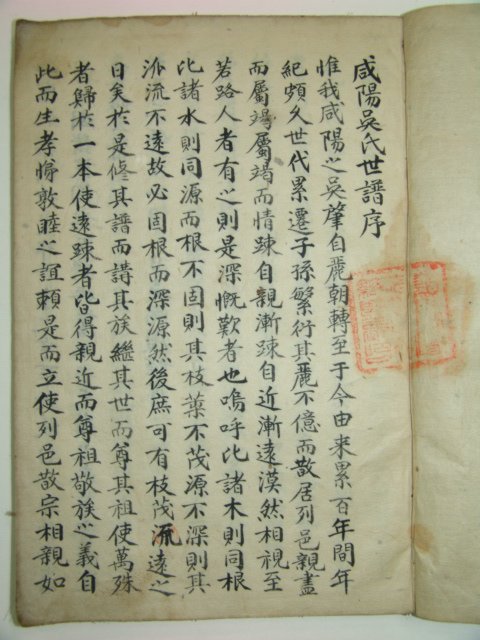 咸陽吳氏世譜序
惟我咸陽之吳肇自麗朝轉至于今由來累百年間年
紀頗久世代累遷子孫繁衍其麗不億而散居列邑親盡
而屬竭屬竭而情踈自親漸踈自近漸遠漠然相視至
若路人者有之則是深慨歎者也嗚呼比諸木則同根
比諸水則同源而根不固則其枝葉不茂源不深則其
派流不遠故必固根而深源然後庶可有枝茂流遠之
日矣於是修其譜而講其族繼其世而尊其祖使萬殊
者歸於一本使遠踈者皆得親近而尊祖敬族之義自
此而生孝悌敦睦之誼賴是而立使列邑散宗相親如